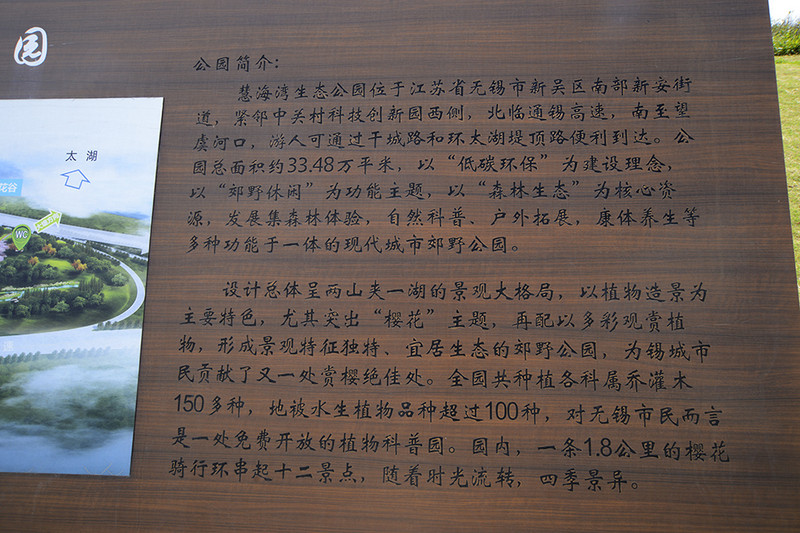 园
公园简介：
慧海湾生态公园位于江苏省无锡市新吴区南部新安街
道，紧邻中关村科技创新园西侧，北临通锡高速，南至望
虞河口，游人可通过干城路和环太湖堤顶路便利到达。公
园总面积约33.48万平米，以“低碳环保”为建设理念，
以“郊野休闲”为功能主题，以“森林生态”为核心资
源，发展集森林体验，自然科普、户外拓展，康体养生等
多种功能于一体的现代城市郊野公园。
设计总体呈两山夹一湖的景观大格局，以植物造景为
主要特色，尤其突出“樱花”主题，再配以多彩观赏植
物，形成景观特征独特、宜居生态的郊野公园，为锡城市
民贡献了又一处赏樱绝佳处。全园共种植各科属乔灌木
150多种，地被水生植物品种超过100种，对无锡市民而言
是一处免费开放的植物科普园。园内，一条1.8公里的樱花
骑行环串起十二景点，随着时光流转，四季景异。
太湖
花谷
WC